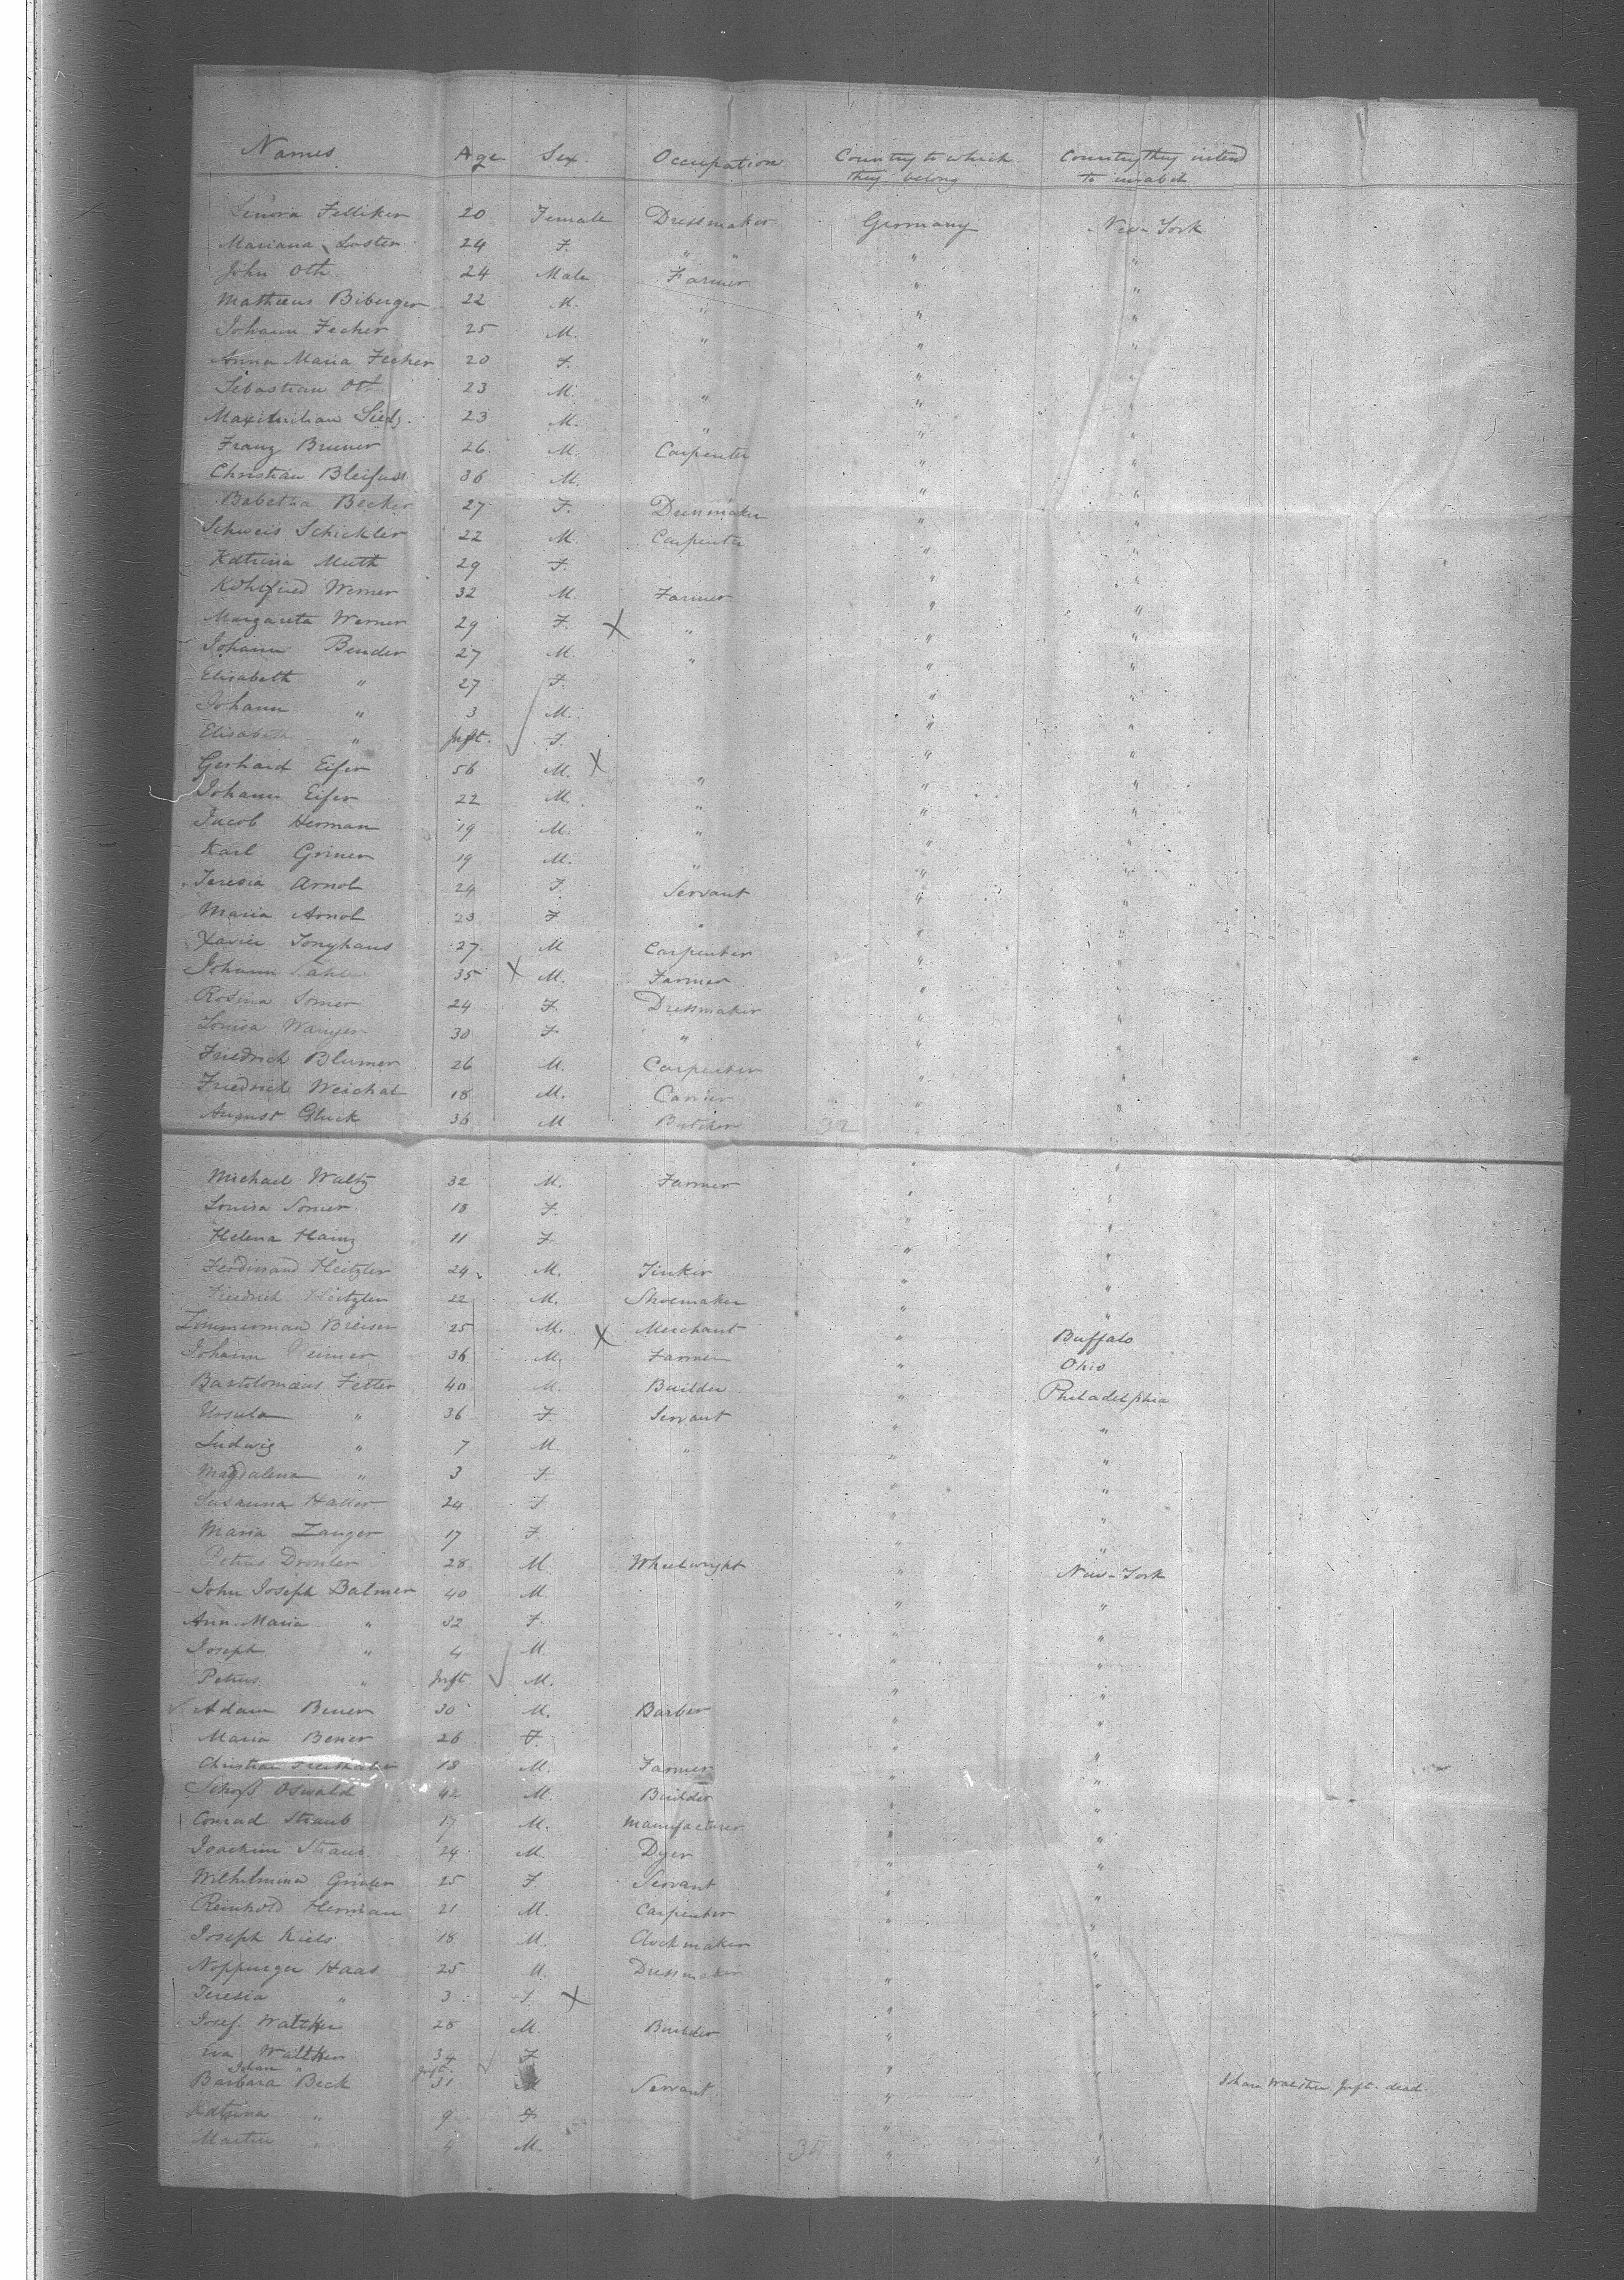 Names Age Sex Occupation Country to which they belong Country they intend to inhabit
Lenora Felliker 20 Female Dressmaker Germany New-York
Mariana Luster 24 F. " " " "
John Oth 24 Male Farmer " "
Matheus Biberger 22 M. " " "
Johann Fecher 25 M. " " "
Anna Maria Fecher 20 F. " "
Sebastian Ott 23 M. " " "
Maximilian 23 M. " " "
Franz Bruner 26 M. Carpenter " "
Christian Bleifuss 36 M. " "
Babetha Becker 27 F. Dressmaker " "
Schweis Schickler 22 M. Carpenter " "
Katrina Muth 29 F. " "
Werner 32 M. Farmer " "
Margareta Werner 29 F. X " " "
Johann Bender 27 M. " " "
Elisabeth " 27 F. " "
Johann " 3 M. " "
Elisabeth " Inft. F. " "
Gerhard Eifer 56 M. X " " "
Johann Eifer 22 M. " " "
Jacob Herman 19 M. " " "
Karl Griner 19 M. " " "
Teresia Arnol 24 F. Servant " "
Maria Arnol 23 F " " "
Xavier Tonyhaus 27 M Carpenter " "
Johann 35 X M. Farmer " "
Rosina Somer 24 F. Dressmaker " "
Louisa Wanger 30 F " " "
Friedrich Blumer 26 M. Carpenter " "
Friedrich Weichat 18 M. Carrier " "
August Gluck 36 M Butcher 32 " "
Michael Waltz 32 M. Farmer " "
Louisa Somer 18 F. " "
Helena Hainz 11 F " "
Ferdinand Heitzler 24 M. Tinker " "
Friedrich Heitzler 22 M. Shoemaker " "
Zimmerman Breisen 25 M. X Merchant " Buffalo
Johann 36 M. Farmer " Ohio
Bartolomäus Fetter 40 M. Builder " Philadelphia
Ursula " 36 F. Servant " "
Ludwig " 7 M " " "
Magdalena " 3 F. " "
Susanna Haller 24 F. " "
Maria Zanger 17 F. " "
Petrus 28 M. Wheelwright " New-York
John Joseph Balmer 40 M " "
Ann Maria " 32 F. " "
Joseph " 4 M. " "
Petrus " Inft M. " "
Adam Bener 30 M. Barber " "
Maria Bener 26 F. " "
Christian 18 M. Farmer " "
Oswald 42 M. Builder " "
Conrad Straub 17 M. Manufacturer " "
Joachim Straub 24 M. Dyer " "
Wilhelmina 25 F. Servant " "
Reinhold Herman 21 M. Carpenter " "
Joseph Kiels 18 M. Clockmaker " "
Haas 25 M. Dressmaker " "
Teresia " 3 F X " "
Josef. Walther 28 M. Builder " "
Eva Walther 34 F " "
Johan " Inft.
Barbara Beck 31 M Servant " Johan Walther Inft. dead.
Katrina " 9 F " "
Martin " 4 M. " "